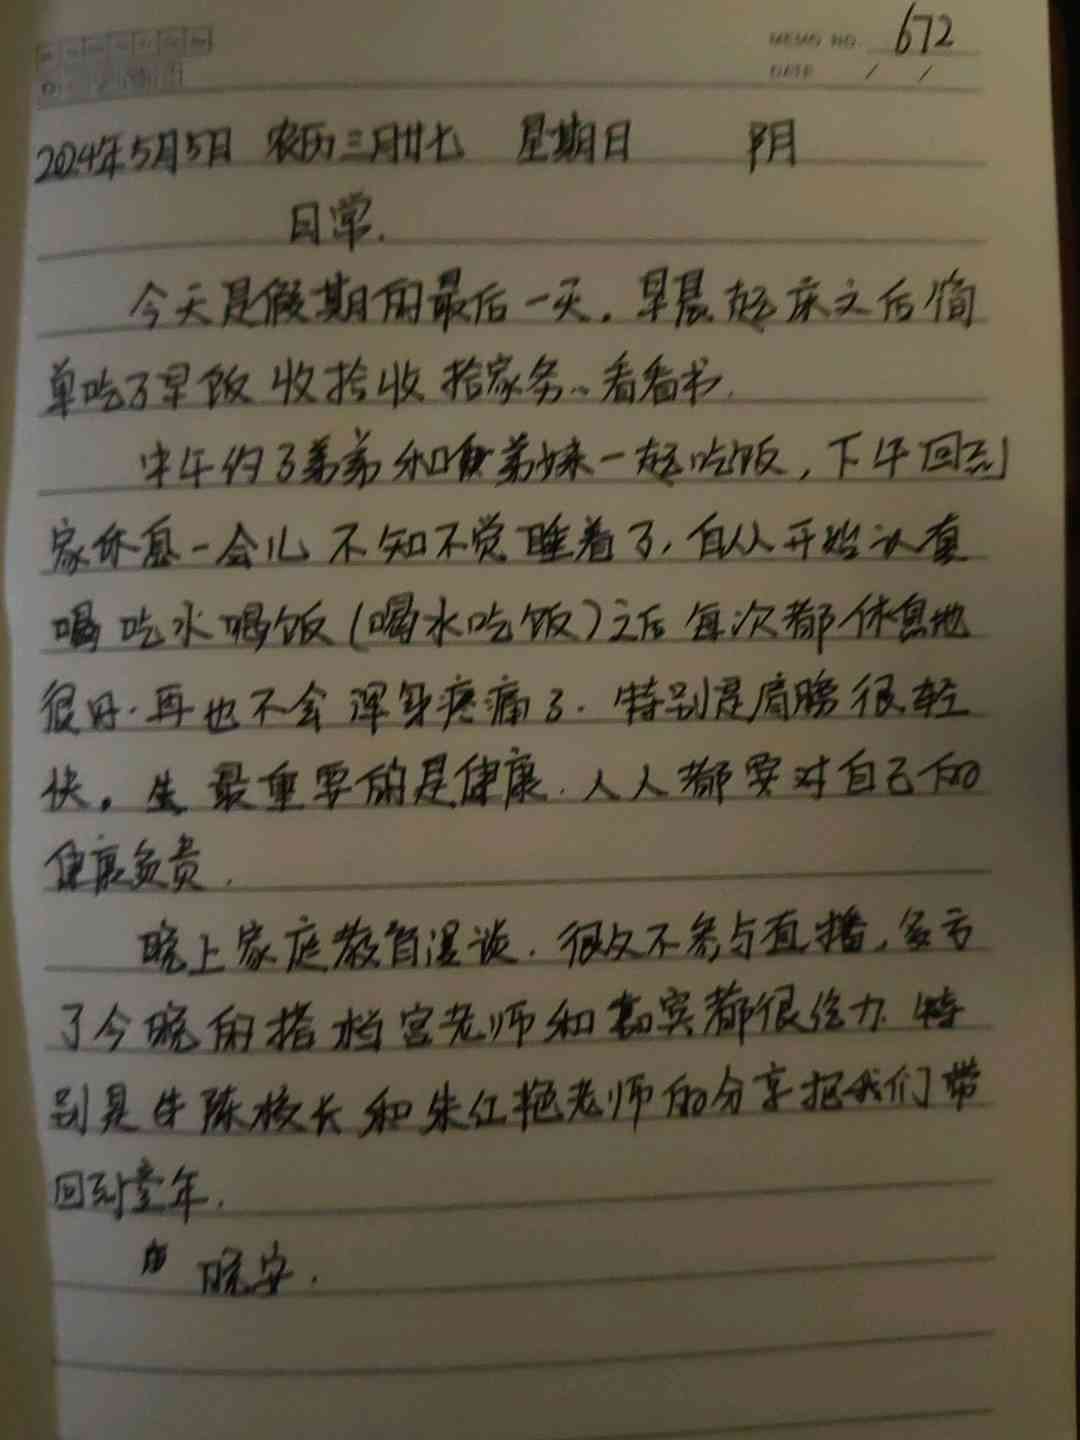 MEMO NO. 672
DATE / /
2024年5月5日 农历三月廿七 星期日 阴
日常.
今天是假期的最后一天。早晨起床之后简
单吃了早饭 收拾收拾家务、看看书.
中午约了弟弟和弟妹一起吃饭，下午回到
家休息一会儿 不知不觉睡着了，自从开始认真
喝吃水喝饭(喝水吃饭)之后 每次都休息地
很好.再也不会浑身疼痛了.特别是肩膀很轻
快。最重要的是健康.人人都要对自己的
健康负责.
晚上家庭教育漫谈.很久不参与直播,多亏
了今晚的搭档宫老师和嘉宾都很给力.特
别是牛陈校长和朱红艳老师的分享把我们带
回到童年.
晚安.